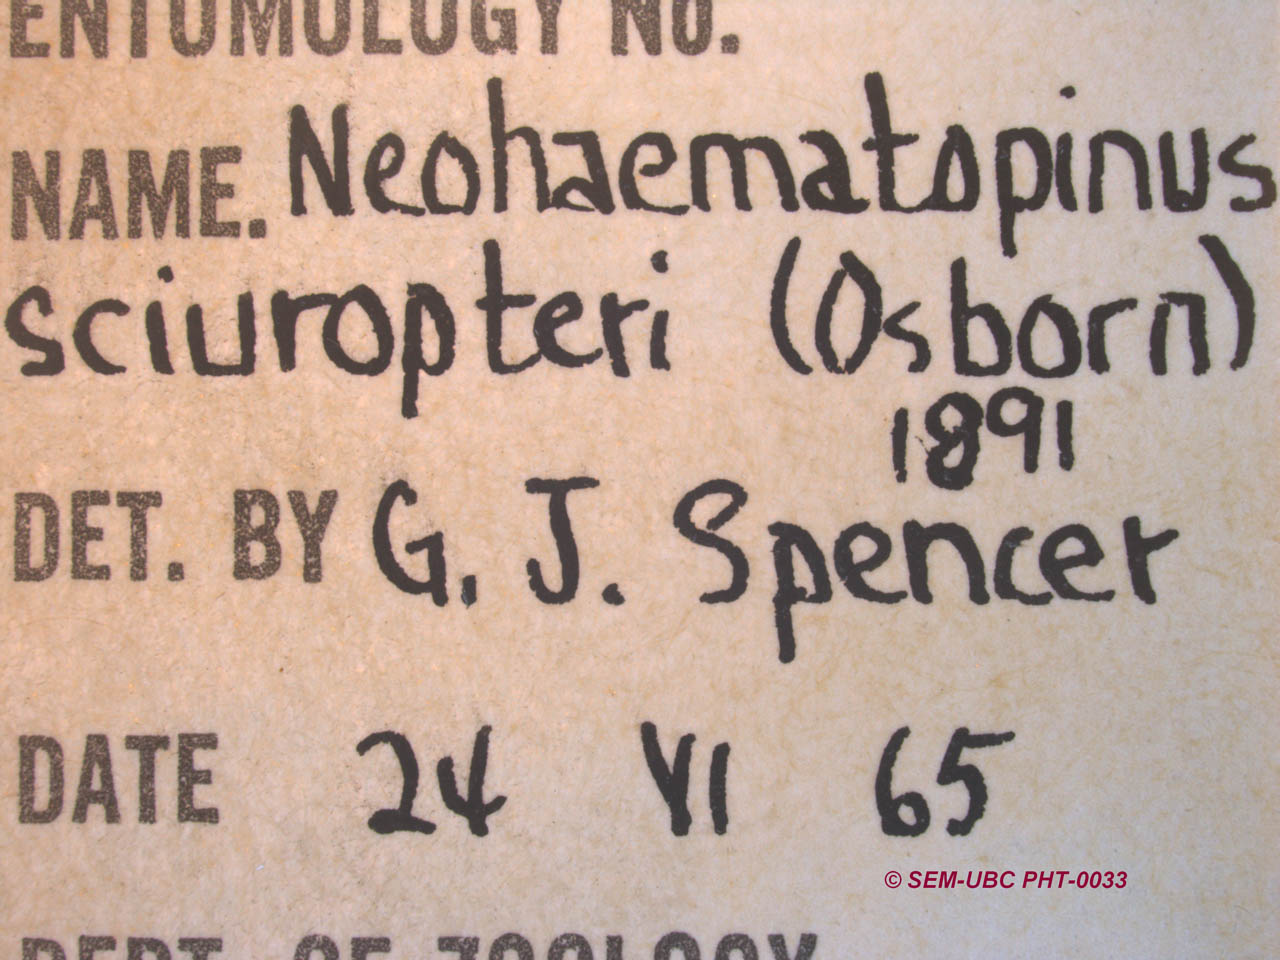 ENTOMOLOGY NO.
NAME. Neohaematopinus
sciuropteri (Osborn)
1891
DET. BY G. J. Spencer
DATE 24 VI 65
© SEM-UBC PHT-0033
DEPT. OF ZOOLOGY